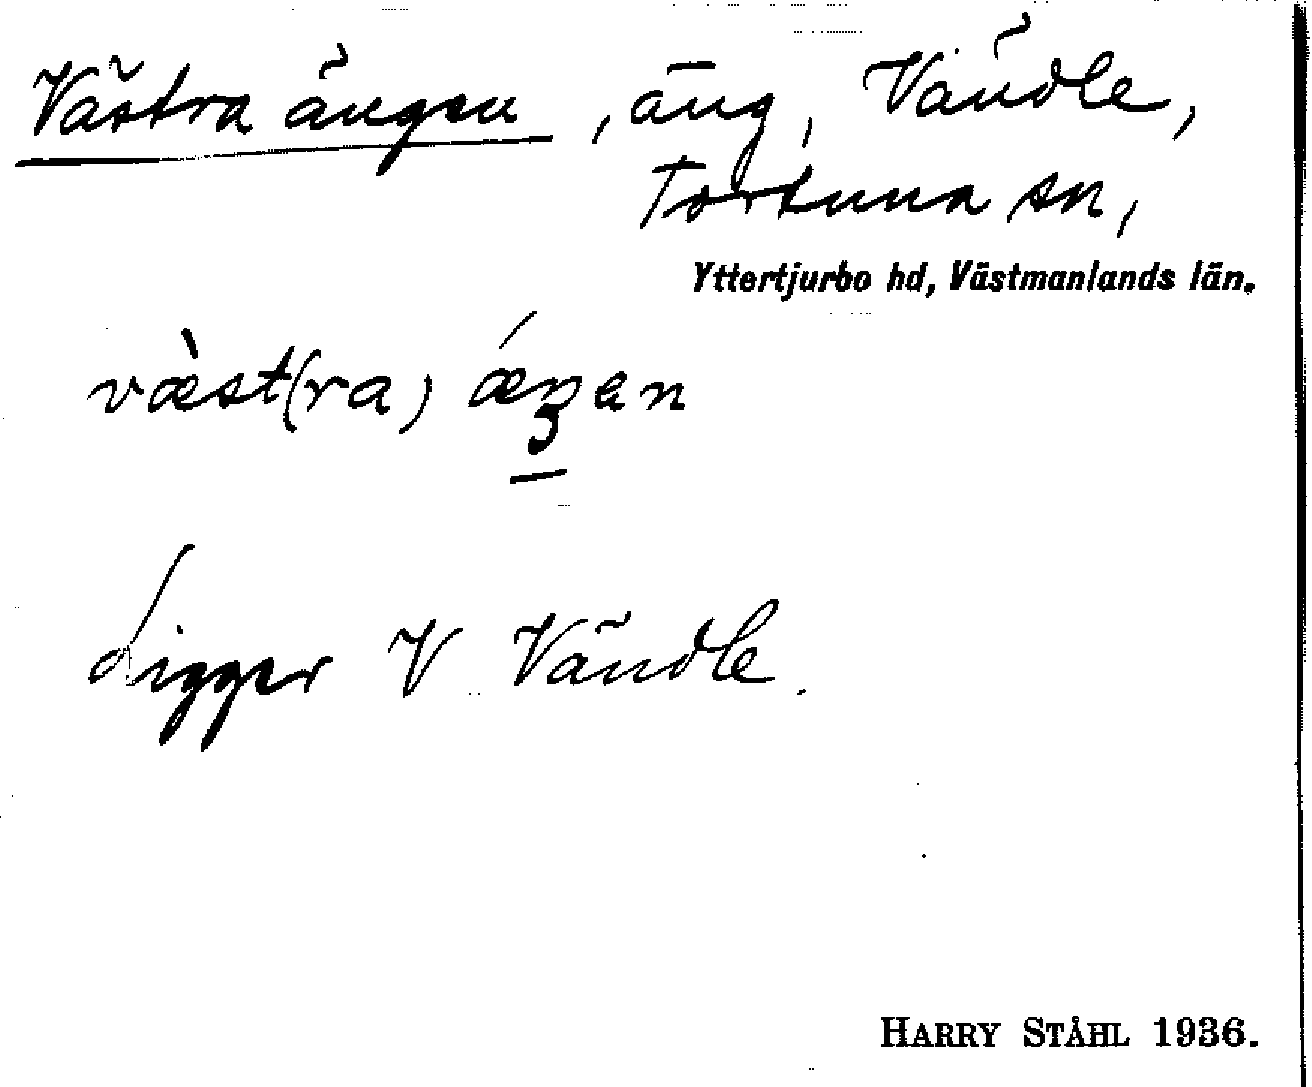 Västra ängen, äng, Vändle,
Tortuna sn,
Yttertjurbo hd, Västmanlands län.
væ̀st(ra) ǽŋen
Ligger V Vändle.
HARRY STÅHL 1936.